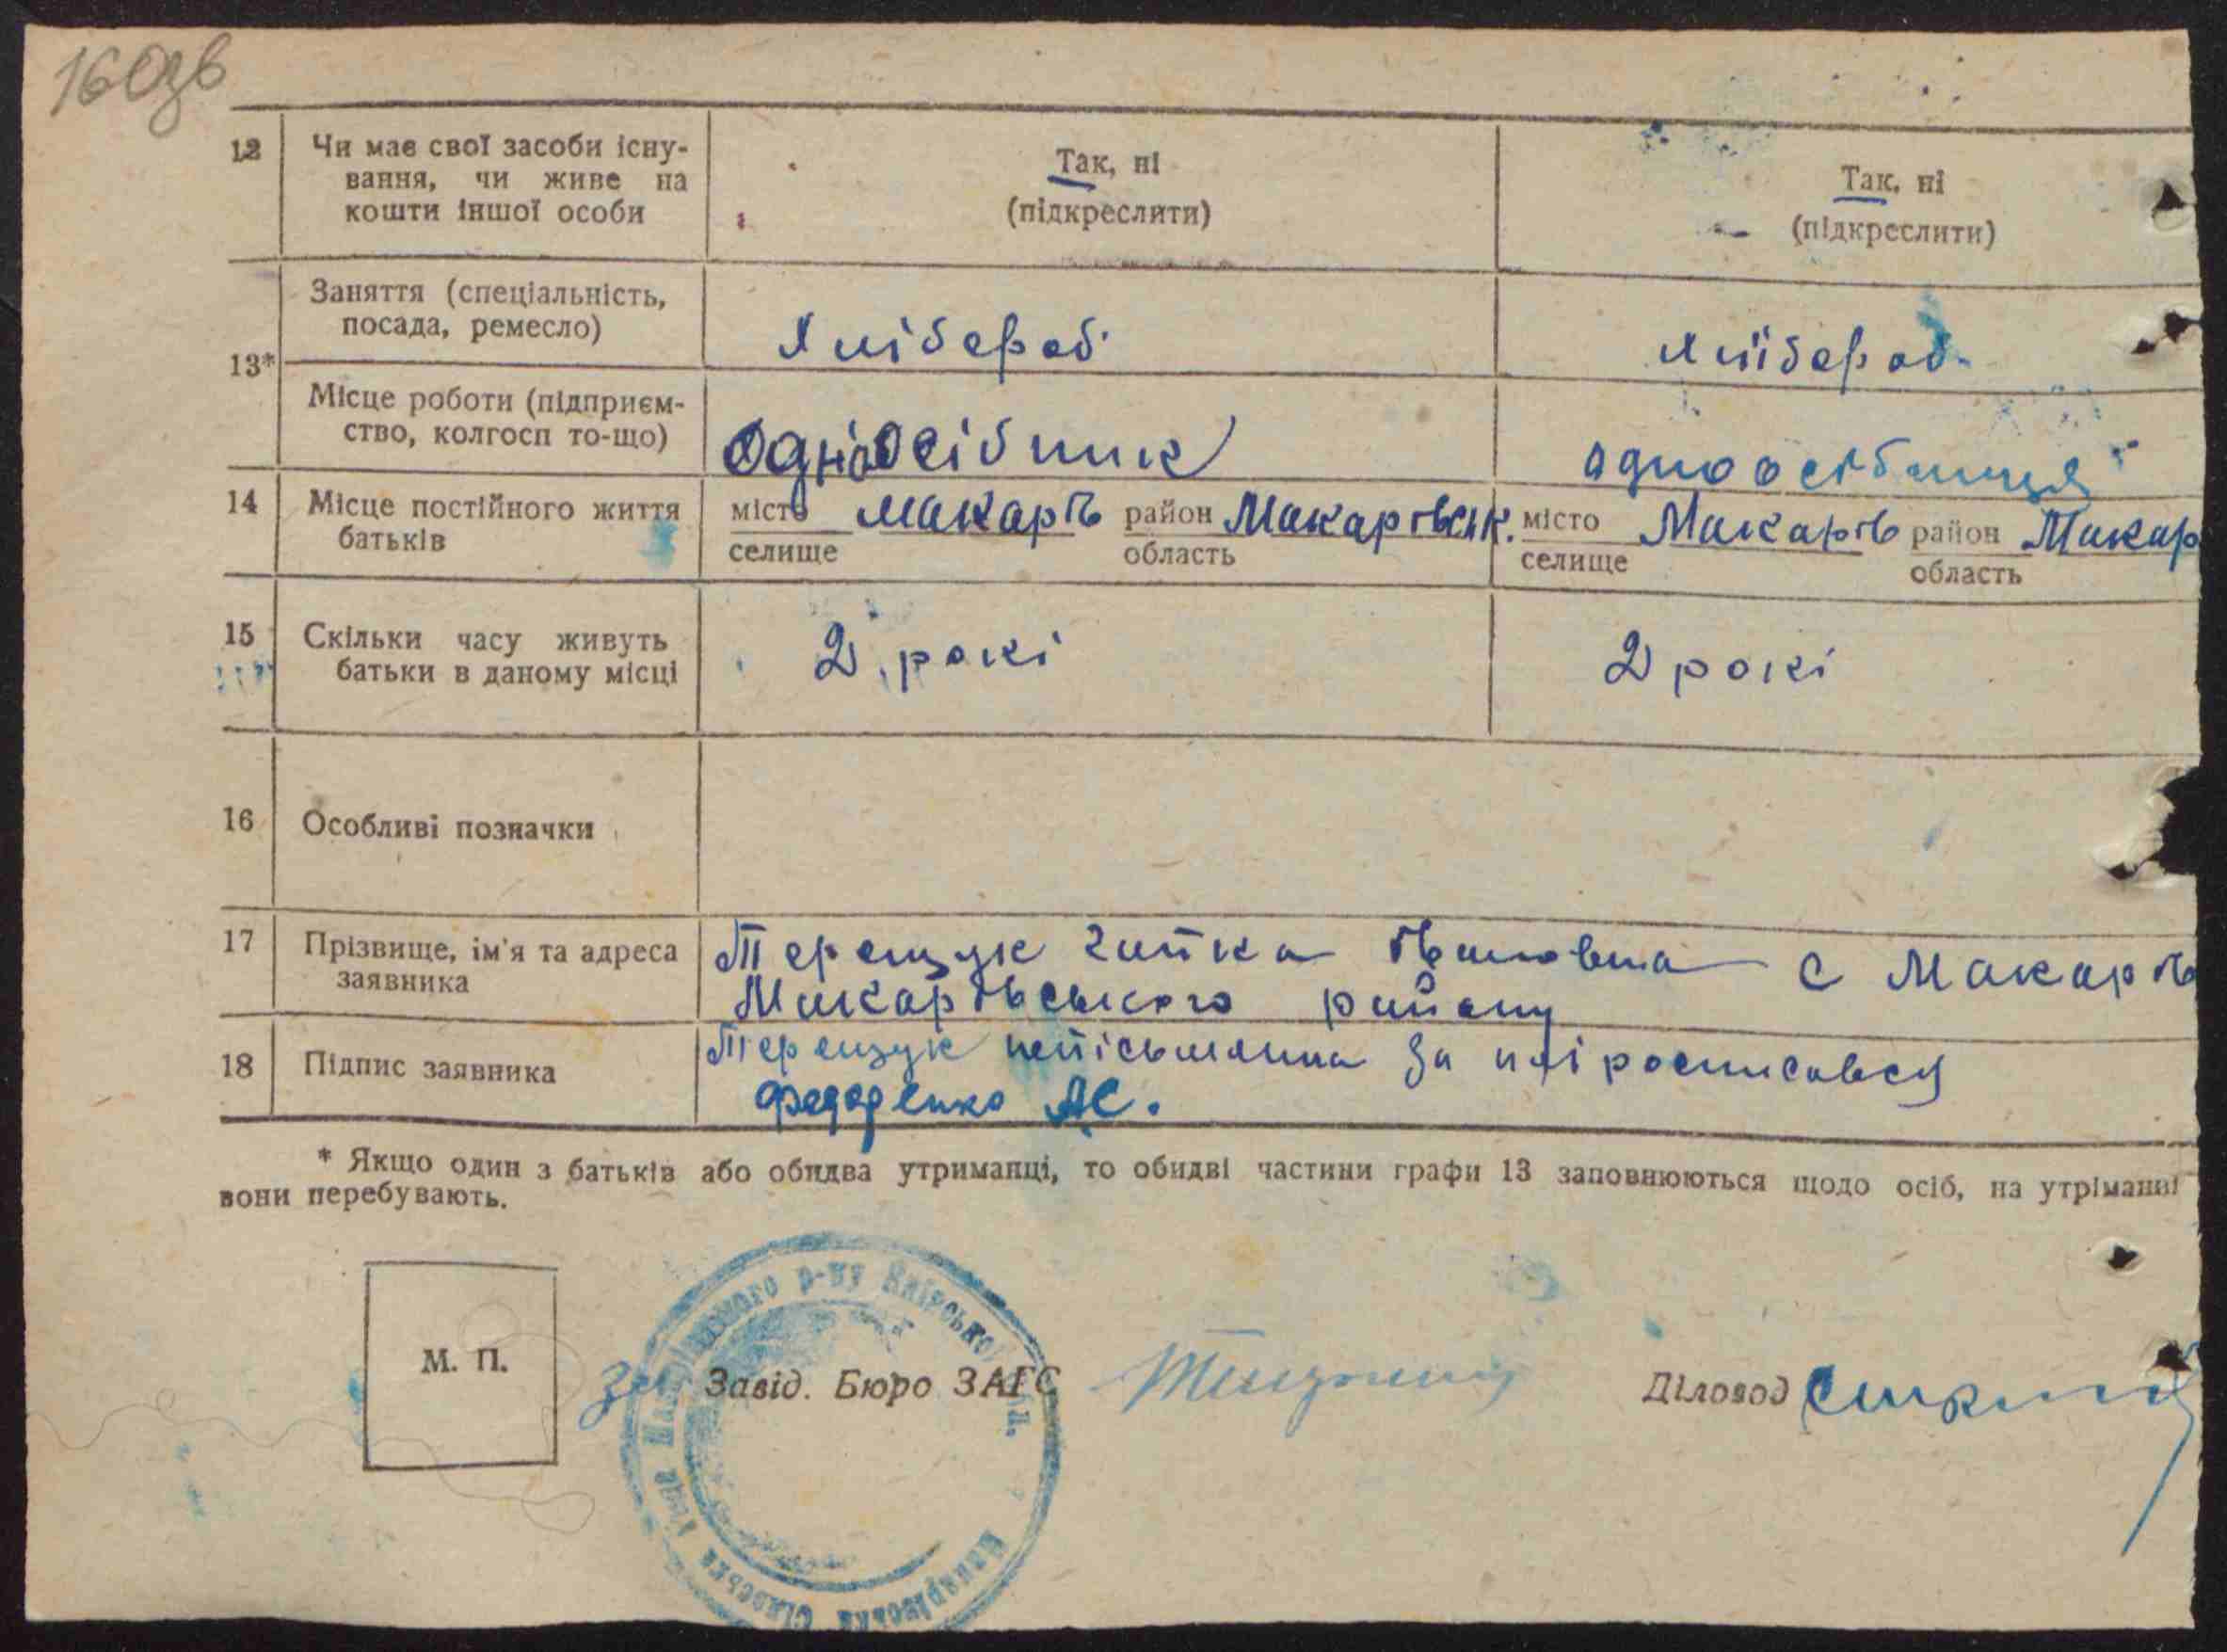 16 зв
12 Чи має свої засоби існу-
вання, чи живе на
кошти іншої особи
Так, ні
(підкреслити)
Так, ні
(підкреслити)
13*
Заняття (спеціальність,
посада, ремесло)
Хлібороб
хлібороб
Місце роботи (підприєм-
ство, колгосп то-що)
Одноосібник
одноосібниця
14 Місце постійного життя
батьків
місто Макарів район Макарівськ.
селище область
місто Макарів район Макар
селище область
15 Скільки часу живуть
батьки в даному місці
2 рокі
2 рокі
16 Особливі позначки
17 Прізвище, ім'я та адреса
заявника
Терещук Івановна с Макарів
Макарівського району
18 Підпис заявника
Терещук за росписався
Федоренко АС.
* Якщо один з батьків або обидва утриманці, то обидві частини графи 13 заповнюються щодо осіб, на утріманні
вони перебувають.
М. П.
за Завід. Бюро ЗАГС
Діловод
Макарівська Сільська Рада Макарівського р-ну Київської